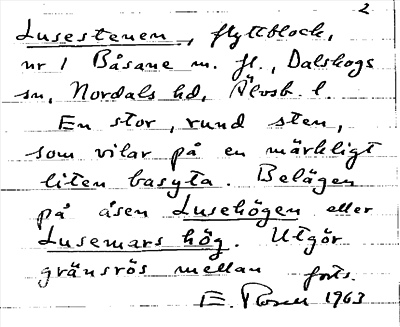 2
Lusestenen, flyttblock,
nr 1 Båsane m. fl., Dalskogs
sn, Nordals hd, Älvsb. l.
En stor, rund sten,
som vilar på en märkligt
liten basyta. Belägen
på åsen Lusehögen eller
Lusemars hög. Utgör
gränsrös mellan forts.
E. 1963